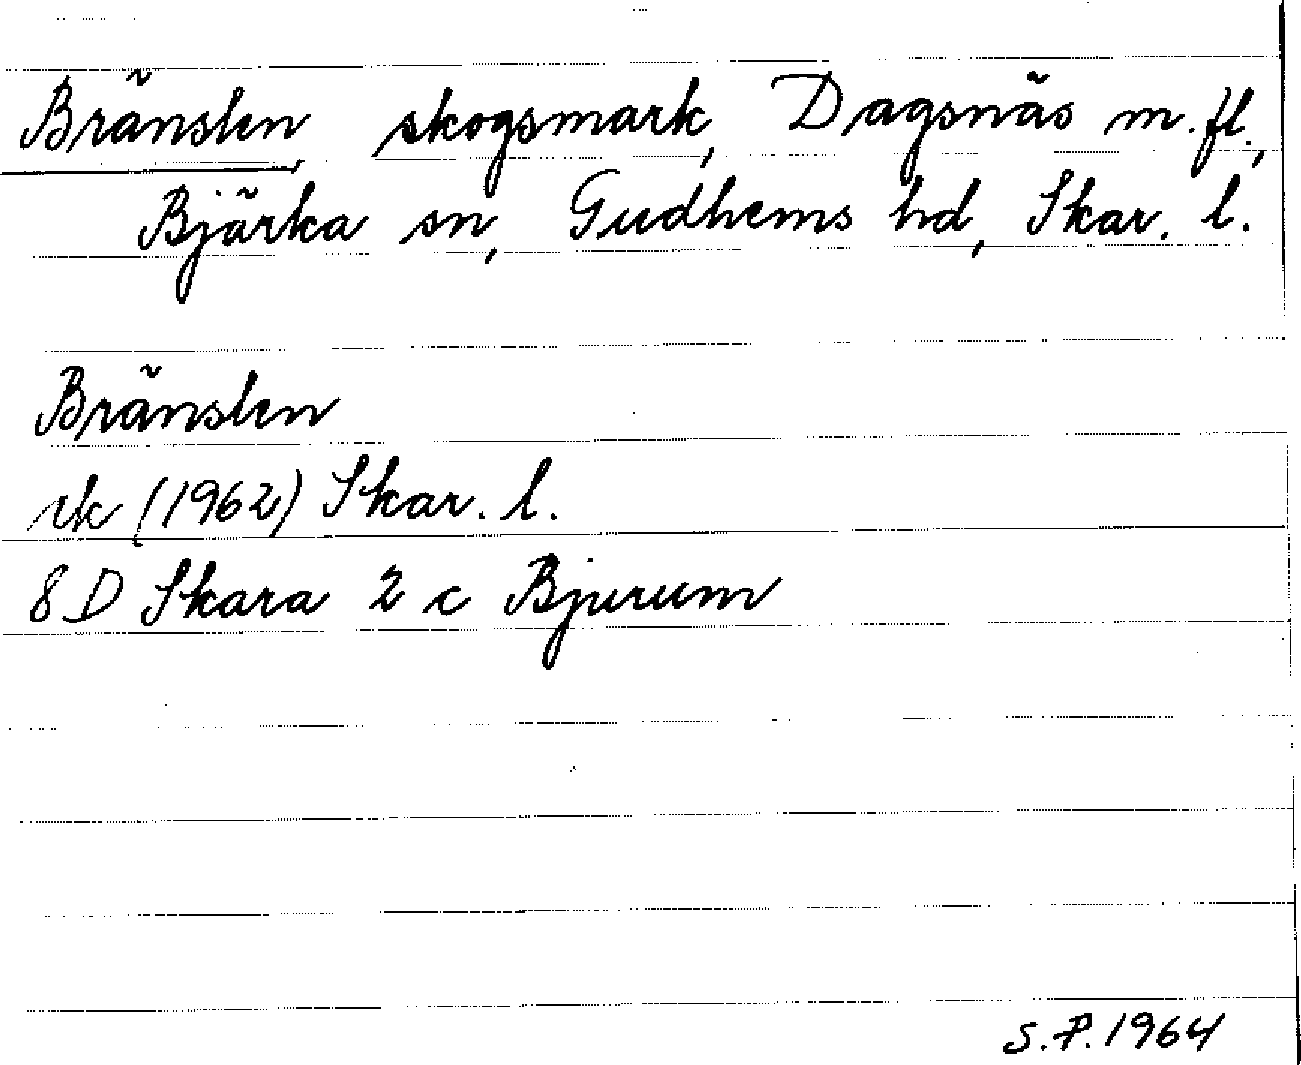 Bränslen, skogsmark, Dagsnäs m. fl.,
Bjärka sn, Gudhems hd, Skar. l.
Bränslen
rk (1962) Skar. l.
8D Skara 2 c Bjurum
S.P. 1964